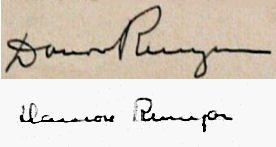 Damon Runyon
Damon Runyon